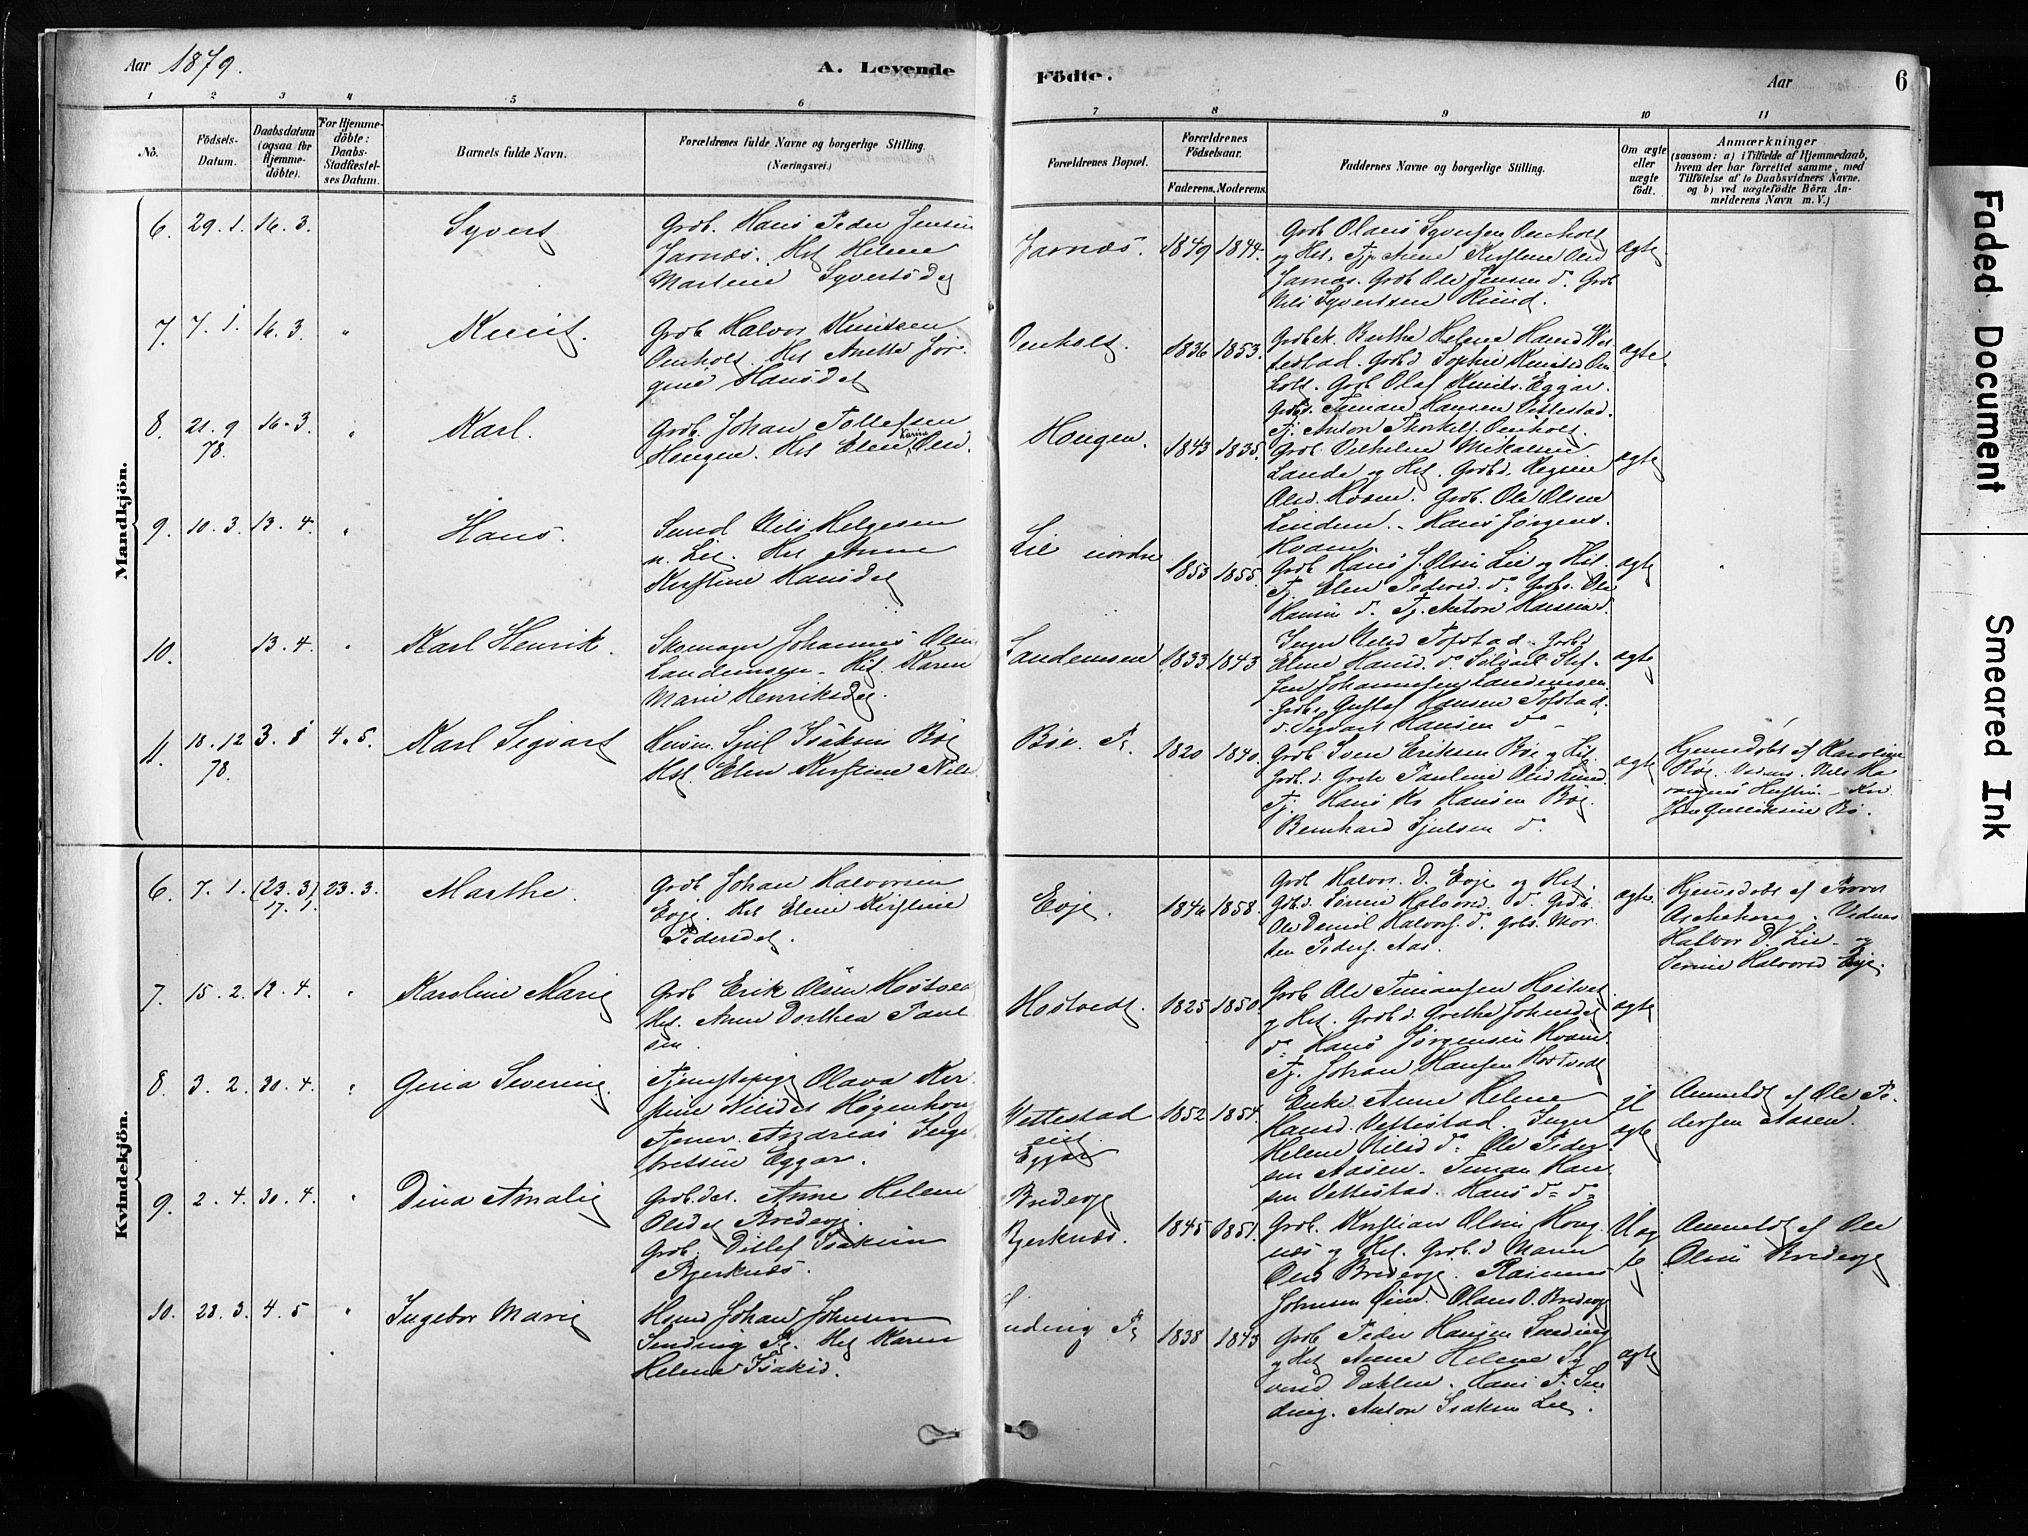 Aar 1879.
A. Levende
Födte.
Aar
6
1 2 3 4 5 6 7 8 9 10 11
No.
Födsels-
Datum.
Daabsdatum
(ogsaa for
Hjemme-
döbte).
For Hjemme-
döbte:
Daabs-
Stadfæstel-
ses Datum.
Barnets fulde Navn.
Forældrenes fulde Navne og borgerlige Stilling.
(Næringsvei.)
Forældrenes Bopæl.
Forældrenes
Födselsaar.
Faderens. Moderens.
Faddernes Navne og borgerlige Stilling.
Om ægte
eller
uægte
födt.
Anmærkninger
(saasom: a) i Tilfælde af Hjemmedaab,
hvem der har forrettet samme, med
Tilföielse af to Daabsvidners Navne.
og b) ved uægtefödte Börn An-
melderens Navn m. V.)
Mandkjön.
6. 29. 1. 16. 3. Syvert
Grdb. Hans Peder Jensen
Jarnæs. Hst Helene
Martine Syvertsdt
Jarnæs. 1849 1844.
Grdb Olaus Syvertsen Omholt
og Hst. Tj. Anne Kirstine Olsd
Jarnæs. Grdb Ole Jensen do. Grdb
Nils Syvertsen Rund.
ægte
7. 7. 1. 16. 3. " Knut.
Grdb Halvor Knutsen
Omholt. Hst Anette Jør-
gine Hansdt
Omholt. 1836 1853.
Grdbek. Berthe Helene Hansd Vet-
testad. Grdbd Sophie Knutsd Om
holt. Grdb Olaf Knuts. Eggar.
Grdbs. Timan Hansen Vettestad.
Tj. Anton Thorkels. Omholt.
ægte.
8. 21. 9 78. 16. 3. " Karl.
Grdb. Johan Tollefsen
Haugen. Hst Elen Karine Olsd.
Haugen. 1843 1835.
Grdb. Vilhelm Mikalsen
Lande og Hst. Grdbd. Regine
Olsd. Hvam. Grdb. Ole Olsen
Lindem. - Hans Jørgens.
Hvam.
ægte
9. 10. 3. 13. 4. " Hans.
Smed Nils Helgesen
n. Lie. Hst Anne
Kirstine Hansdt
Lie nordre 1853 1855.
Grdb Hans J. Olsen Lie og Hst.
Tj. Elen Pedersd. do. Grdbs. Ole
Hansen do. Tj. Anton Hansen do.
ægte
10. 13. 4. " Karl Henrik.
Skomager Johannes Olsen
Landemsen. Hst. Karen
Marie Henriksdt.
Landemsen 1833 1843
Inger Nilsd Tofstad. Grdbd
Elene Hansd. do
Johannesen Landemsen.
Grdbs. Gustaf Hansen Tofstad.
do. Sigvart Hansen do
ægte
11. 18. 12 78. 3. 1 4. 5. Karl Sigvart
Husm. Sjul Isaksen Bøe
Hst. Elen Kirstine Nilsd
Bøe. Pl. 1820 1840.
Grdb. Sven Eriksen Bøe og Hst
Grdbd. Grete Pauline Olsd Lund.
Tj. Hans Kr Hansen Bøe.
Bernhard Sjulsen do.
ægte
Hjemmedøbt af Karoline
Bøe. Vidner. Nils Ha
Kvindekjön.
6. 7. 1. (23. 3) 17. 1. 23. 3. Marthe.
Grdb Johan Halvorsen
Evje. Hst Elen Kirstine
Pedersdt.
Evje. 1846 1858.
Grdb Halvor D. Evje og Hst.
Grdbd. Sørine Halvorsd. do. Grdb.
Ole Daniel Halvors. do. Grdbs. Mor-
ten Peders. Aas.
ægte.
Hjemmedøbt af Provst
Aschehoug. Vidner
Halvor D. Lie og
Sørine Halvorsd Evje.
7. 15. 2. 12. 4. " Karoline Marie
Grdb Erik Olsen Hostvet
Hst. Anne Dorthea Paul
sen.
Hostvedt. 1825 1850.
Grdb Ole Timansen Hostvet
og Hst. Grdbd. Grethe Johnsdt
do. Hans Jørgensen Hvam
Tj. Johan Hansen Hostvedt
ægte
8. 3. 2. 30. 4. " Gina Severine.
Tjenestepige Olava Kir
stine Nilsdt Høgenhoug
Tjener Andreas Inge
bretsen Eggar.
Vettestad
eie
Eggar 1852 1854.
Enke Anne Helene
Hansd. Vettestad. Inger
Helene Nilsd do. Ole Peder
sen Aasen. Timan Han
sen Vettestad. Hans do do
Anmeldt af Ole Pe
dersen Aasen.
9. 2. 4. 30. 4. " Dina Amalie
Grdb.dat. Anne Helene
Olsdt Bredevje.
Grdb. Ditlef Isaksen
Bjerknæs.
Bredevje
Bjerknæs. 1845 1851.
Grdb. Kristian Olsen Houg
næs og Hst. Grdb.d Maren
Olsd Bredevje. Rasmus
Johnsen Lund. Olaus O. Bredevje
Uæg
te
Anmeldt af Ole
Olsen Bredevje
10. 23. 3. 4. 5 " Ingebor Marie
Husmd Johan Johnsen
Snding Pl. Hst Karen
Helene Isaksd.
nding Pl 1838 1843
Grdb Peder Hansen Snding
og Hst Anne Helene Sy
versd Dahlen. Hans P. Sn
ding. Anton Isaksen Lie.
ægte
Faded Document
Smeared Ink